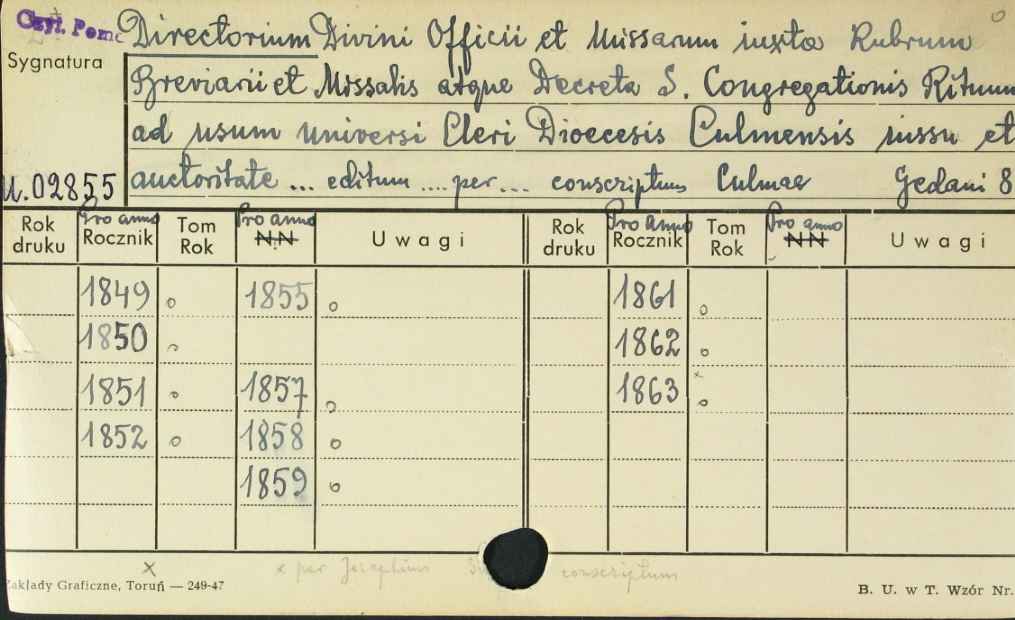 Czyt. Pom
Directorium Divini Officii et Missarum iuxta Rubrum
Sygnatura
Breviarii et Missalis atque Decreta S. Congregationis Rituum
ad usum universi Cleri Dioecesis Culmensis iussu et
U.02855 auctoritate ... editum .... per... conscriptum Culmae Gedani 8
Rok druku Pro anno Rocznik Tom Rok Pro anno N.N Uwagi Rok druku Pro anno Rocznik Tom Rok Pro anno NN Uwagi
1849 o 1855 o 1861 o
1850 o 1862 o
1851 o 1857 o 1863 x o
1852 o 1858 o
1859 o
x x per Josephum conscriptum
Zakłady Graficzne, Toruń — 249-47 B. U. w T. Wzór Nr.